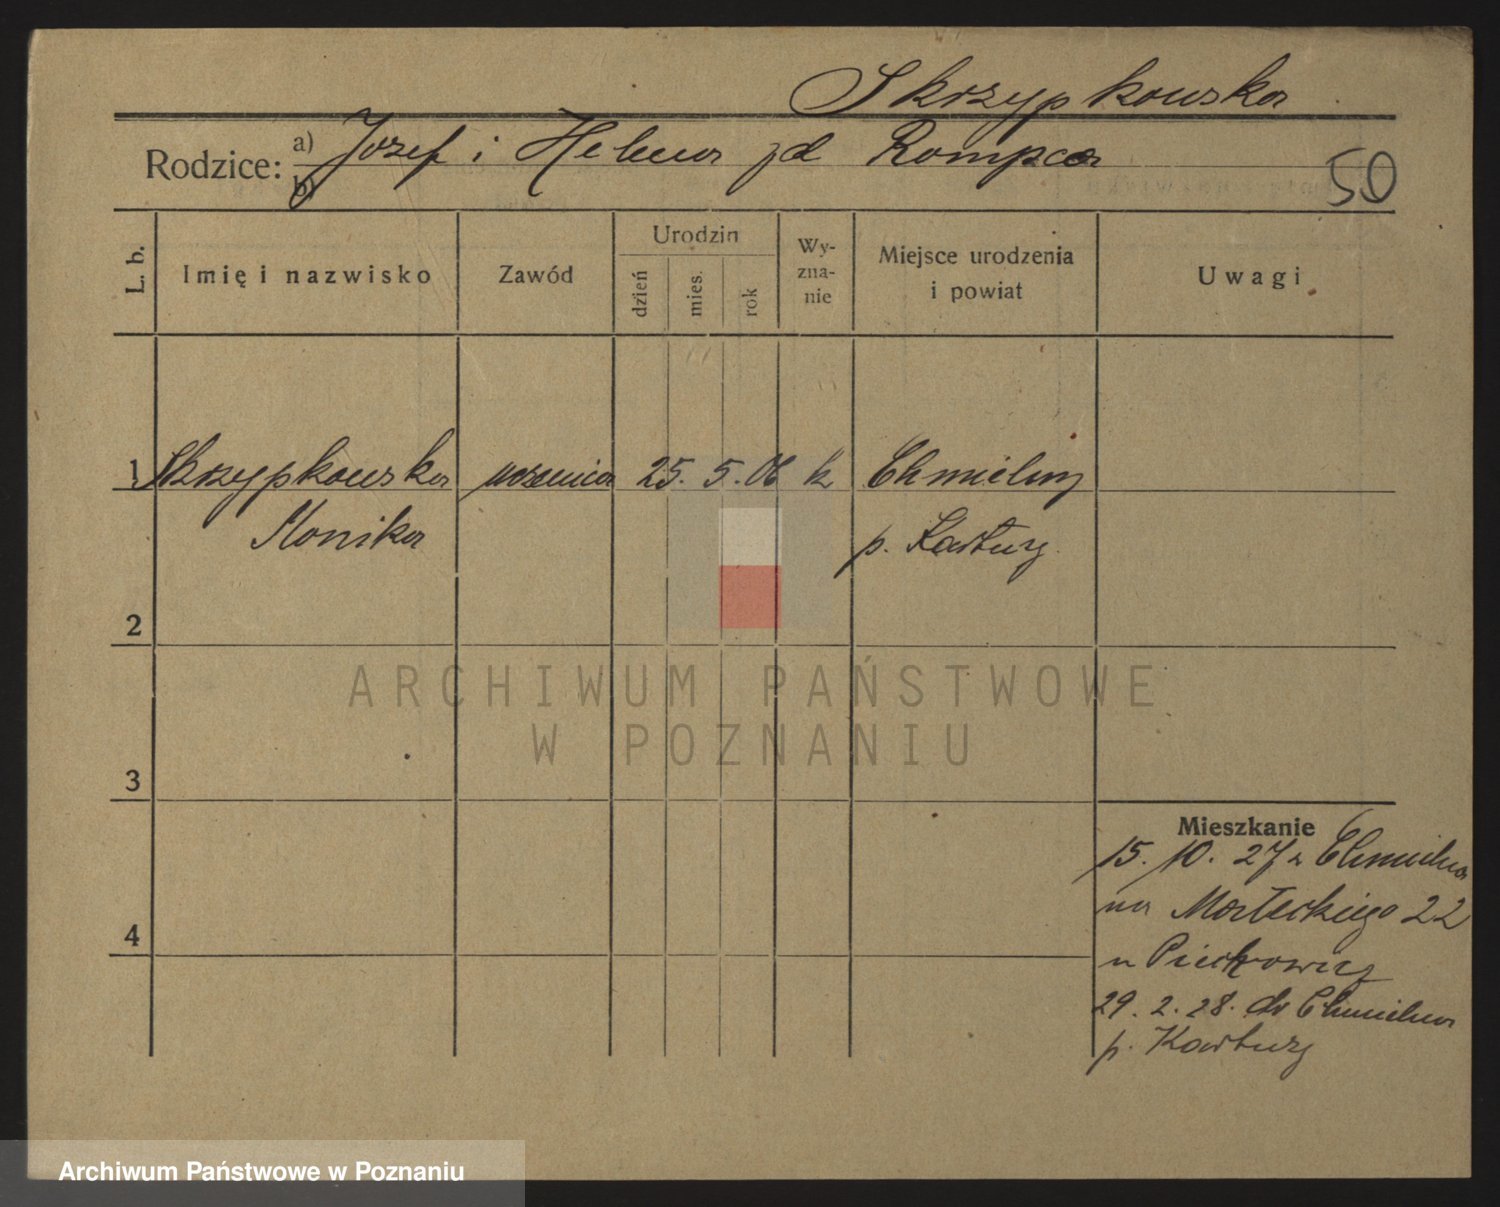 Skrzypkowska
Rodzice: a) Józef i Helena zd Rompca
b)
50
L. b.
Imię i nazwisko
Zawód
Urodzin
dzień
mies.
rok
Wy-
zna-
nie
Miejsce urodzenia
i powiat
Uwagi
1 Skrzypkowska uczenica 25. 5. 06 k Chmielny
Monika p. Kartuzy
2
3
4
Mieszkanie
15. 10. 27 z Chmielna
na Małeckiego 22
u
29. 2. 28. do Chmielna
p. Kartuzy
ARCHIWUM PAŃSTWOWE
W POZNANIU
Archiwum Państwowe w Poznaniu